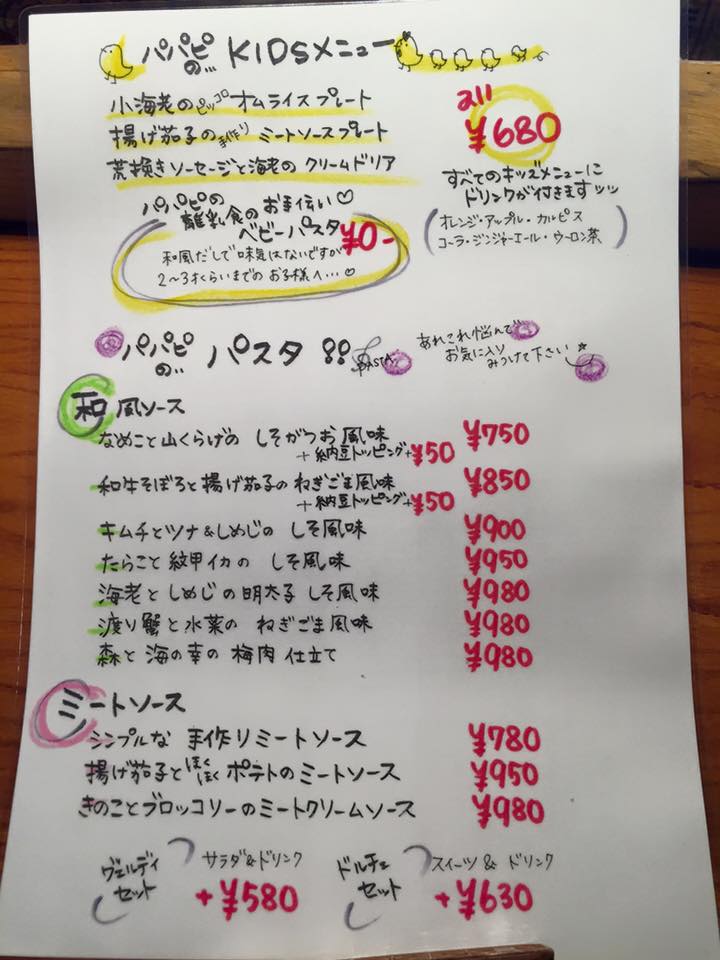 パパピの… KIDSメニュー
小海老のピッコロオムライスプレート
揚げ茄子の手作りミートソースプレート
荒挽きソーセージと海老のクリームドリア
all
¥680
すべてのキッズメニューに
ドリンクが付きますッッ
(オレンジ・アップル・カルピス
コーラ・ジンジャーエール・ウーロン茶)
パパピの
離乳食のお手伝い♡
ベビーパスタ ¥0-
和風だしで味気はないですが
2〜3才くらいまでのお子様へ…♡
パパピの… パスタ !! PASTA
あれこれ悩んで
お気に入り
みつけて下さい☆
和風ソース
なめこと山くらげの しそがつお風味 ¥750
+納豆トッピング+¥50
和牛そぼろと揚げ茄子のねぎごま風味 ¥850
+納豆トッピング+¥50
キムチとツナ&しめじの しそ風味 ¥900
たらこと紋甲イカの しそ風味 ¥950
海老としめじの明太子しそ風味 ¥980
渡り蟹と水菜の ねぎごま風味 ¥980
森と海の幸の梅肉仕立て ¥980
ミートソース
シンプルな 手作りミートソース ¥780
揚げ茄子とほくほくポテトのミートソース ¥950
きのことブロッコリーのミートクリームソース ¥980
ヴェルディセット
サラダ&ドリンク
+¥580
ドルチェセット
スイーツ & ドリンク
+¥630